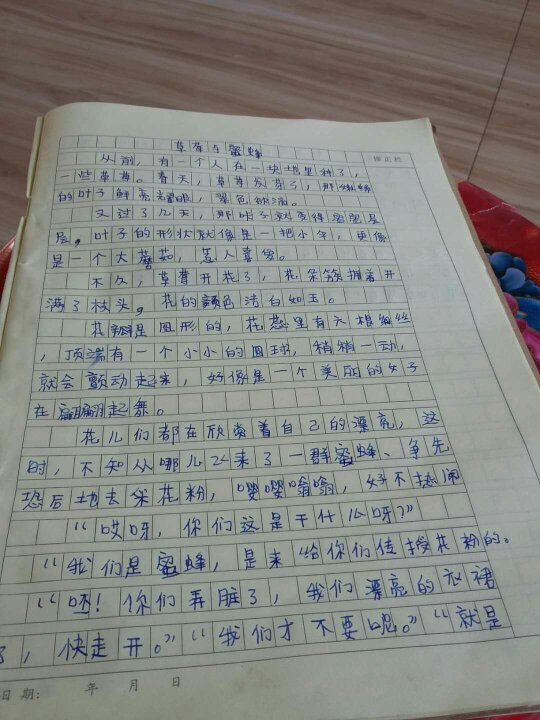 草莓与蜜蜂
修正栏
从前，有一个人在一块地里种了，
一些草莓。春天，草莓发芽了，那嫩嫩
的叶子鲜亮耀眼，翠色欲滴。
又过了几天，那叶子就变得密密层
层。叶子的形状就像是一把小伞，更像
是一个大蘑菇，惹人喜爱。
不久，草莓开花了，花朵簇拥着开
满了枝头。花的颜色洁白如玉。
花瓣是圆形的，花蕊里有六根细丝
，顶端有一个小小的圆球，稍稍一动，
就会颤动起来，好像是一个美丽的女子
在翩翩起舞。
花儿们都在欣赏着自己的漂亮，这
时，不知从哪儿飞来了一群蜜蜂、争先
恐后地去采花粉，嘤嘤嗡嗡，好不热闹
“哎呀，你们这是干什么呀？”
“我们是蜜蜂，是来给你们传授花粉的。
“呸！你们弄脏了，我们漂亮的衣裙
了，快走开。”“我们才不要呢。”“就是
日期： 年 月 日